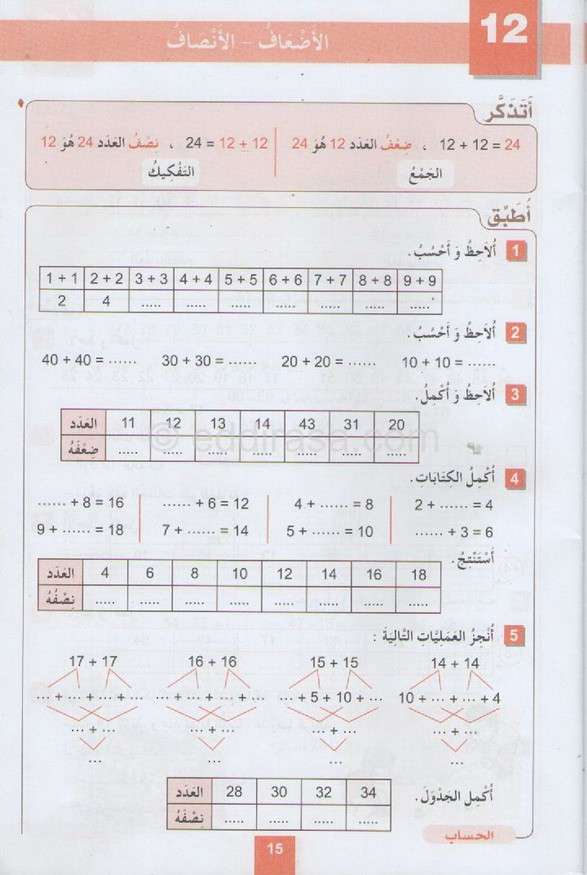 12
الأَضْعَافُ - الأَنْصَافُ
أَتَذَكَّر
12 + 12 = 24 ، ضِعْفُ العَدَد 12 هُوَ 24
الجَمْعُ
24 = 12 + 12 ، نِصْفُ العَدَد 24 هُوَ 12
التَفْكِيكُ
أُطَبِّق
1 أُلاَحِظُ وَ أَحْسُبُ.
1 + 1 2 + 2 3 + 3 4 + 4 5 + 5 6 + 6 7 + 7 8 + 8 9 + 9
2 4 ..... ..... ..... ..... ..... ..... .....
2 أُلاَحِظُ وَ أَحْسُبُ.
40 + 40 = ...... 30 + 30 = ...... 20 + 20 = ...... 10 + 10 = ......
3 أُلاَحِظُ وَ أُكْمِلُ.
العَدَد 11 12 13 14 43 31 20
ضِعْفُهُ ..... ..... ..... ..... ..... ..... .....
© eddirasa.com
4 أُكْمِلُ الكِتَابَاتِ.
...... + 8 = 16 ...... + 6 = 12 4 + ...... = 8 2 + ...... = 4
9 + ...... = 18 7 + ...... = 14 5 + ...... = 10 ...... + 3 = 6
أَسْتَنْتِجُ.
العَدَد 4 6 8 10 12 14 16 18
نِصْفُهُ ..... ..... ..... ..... ..... ..... ..... .....
5 أُنْجِزُ العَمَلِيَّاتِ التَّالِيَةَ :
17 + 17 16 + 16 15 + 15 14 + 14
... + ... + ... + ... ... + ... + ... + ... ... + 5 + 10 + ... 10 + ... + ... + 4
... + ... ... + ... ... + ... ... + ...
... ... ... ...
أُكْمِلُ الجَدْوَلَ.
العَدَد 28 30 32 34
نِصْفُهُ ..... ..... ..... .....
الحساب
15